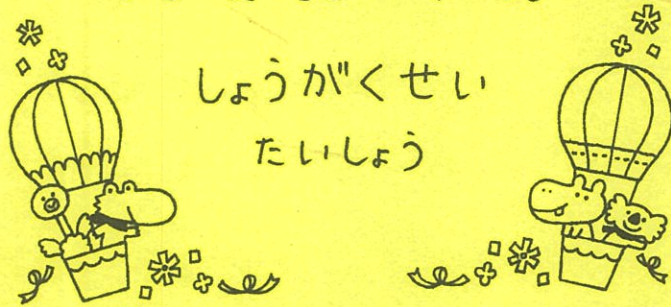 しょうがくせい
たいしょう